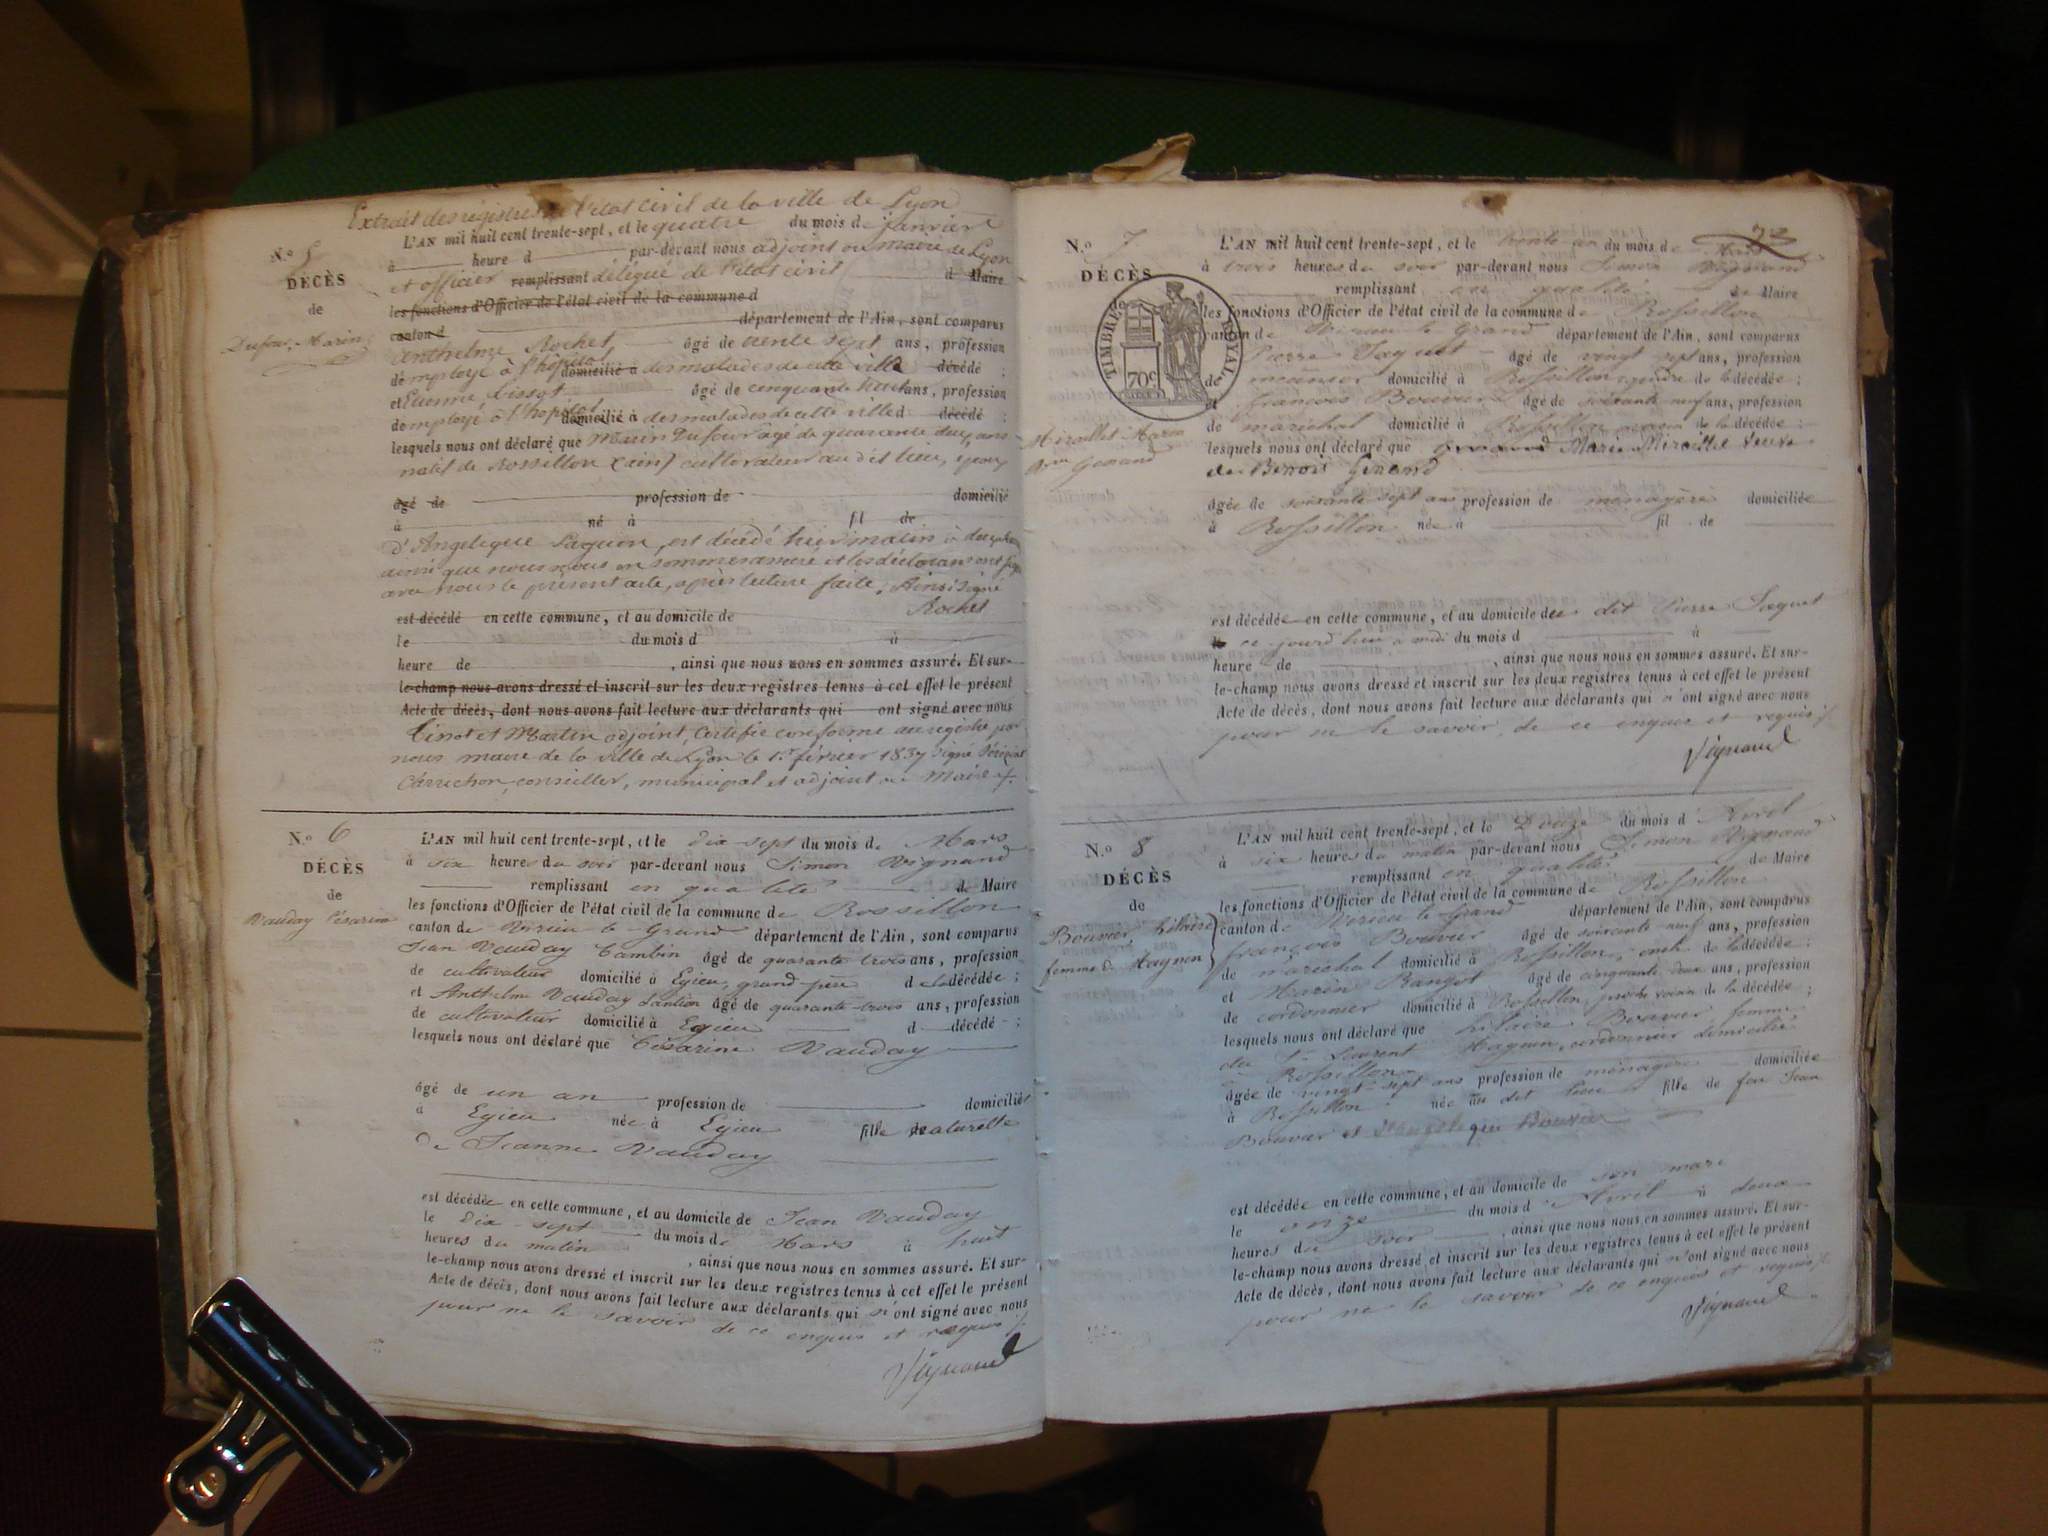 Extrait des régistres de l'état civil de la ville de Lyon
N.o 5
DÉCÈS
de
Dufour, Marin
L'AN mil huit cent trente-sept, et le quatre du mois de janvier
à heure d par-devant nous adjoint au Maire de Lyon
et officier remplissant délégué de l'état civil d Maire
les fonctions d'Officier de l'état civil de la commune d
canton d département de l'Ain, sont comparus
Anthelme Rochet âgé de trente sept ans, profession
d'employé à l'hôpital domicilié à des malades de cette ville décédé ;
et Etienne Lissot âgé de cinquante huit ans, profession
d'employé à l'hopital domicilié à des malades de cette ville d décédé ;
lesquels nous ont déclaré que Marin Dufour agé de quarante deux ans
natif de Rossillon (ain) cultivateur au dit lieu, époux
âgé de profession de domicilié
à né à fil de
d'Angelique Paquon, est décédé hier matin à
ainsi que nous nous en sommes assuré et les déclarans ont signé
avec nous le présent acte, après lecture faite. Ainsi signé
Rochet
est décédé en cette commune, et au domicile de
le du mois d à
heure de , ainsi que nous nous en sommes assuré. Et sur-
le-champ nous avons dressé et inscrit sur les deux registres tenus à cet effet le présent
Acte de décès, dont nous avons fait lecture aux déclarants qui ont signé avec nous
Tinot et Martin adjoint, Certifié conforme au registre par
nous maire de la ville de Lyon le 1.er février 1837 signé
Carrichon, conseiller, municipal et adjoint au Maire
N.o 6
DÉCÈS
de
Vauday Césarine
L'AN mil huit cent trente-sept, et le dix-sept du mois de Mars
à six heures du soir par-devant nous Simon Vignand
remplissant en qualité de Maire
les fonctions d'Officier de l'état civil de la commune de Rossillon
canton de Virieu-le-Grand département de l'Ain, sont comparus
Jean Vauday Tambin âgé de quarante trois ans, profession
de cultivateur domicilié à Egieu, grand-père de la décédée ;
et Anthelme Vauday âgé de quarante-trois ans, profession
de cultivateur domicilié à Egieu d décédé ;
lesquels nous ont déclaré que Césarine Vauday
âgé de un an profession de domiciliée
à Egieu née à Egieu fille naturelle
de Jeanne Vauday
est décédée en cette commune, et au domicile de Jean Vauday
le dix-sept du mois de Mars à huit
heures du matin , ainsi que nous nous en sommes assuré. Et sur-
le-champ nous avons dressé et inscrit sur les deux registres tenus à cet effet le présent
Acte de décès, dont nous avons fait lecture aux déclarants qui n'ont signé avec nous
pour ne le savoir de ce enquis et requis
Vignand
73
N.o 7
DÉCÈS
de
TIMBRE ROYAL
70c
Miraillet Marie
Vve Genand
L'AN mil huit cent trente-sept, et le trente-un du mois de Mars
à trois heures du soir par-devant nous Simon Vignand
remplissant en qualité de Maire
les fonctions d'Officier de l'état civil de la commune de Rossillon
canton de Virieu-le-Grand département de l'Ain, sont comparus
Pierre Jaquet âgé de vingt sept ans, profession
de domicilié à Rossillon, gendre de la décédée ;
et françois Bouvier âgé de soixante neuf ans, profession
de maréchal domicilié à Rossillon, voisin de la décédée ;
lesquels nous ont déclaré que Marie Miraillet veuve
de Benoit Genand
âgée de soixante-sept ans profession de ménagère domiciliée
à Rossillon née à fil de
est décédée en cette commune, et au domicile des dit Pierre Jaquet
le ce jourd'hui à midi du mois d à
heure de , ainsi que nous nous en sommes assuré. Et sur-
le-champ nous avons dressé et inscrit sur les deux registres tenus à cet effet le présent
Acte de décès, dont nous avons fait lecture aux déclarants qui n'ont signé avec nous
pour ne le savoir, de ce enquis et requis
Vignand
N.o 8
DÉCÈS
de
Bouvier hilaire
femme d. Maguin
L'AN mil huit cent trente-sept, et le Douze du mois d'Avril
à six heures du matin par-devant nous Simon Vignand
remplissant en qualité de Maire
les fonctions d'Officier de l'état civil de la commune de Rossillon
canton de Virieu-le-Grand département de l'Ain, sont comparus
françois Bouvier âgé de soixante neuf ans, profession
de maréchal domicilié à Rossillon, oncle de la décédée ;
et Marin Rangot âgé de cinquante deux ans, profession
de cordonnier domicilié à Rossillon, proche voisin de la décédée ;
lesquels nous ont déclaré que hilaire Bouvier femme
du Sr Laurent Maguin, cordonnier domicilié
à Rossillon
âgée de vingt-sept ans profession de ménagère domiciliée
à Rossillon née au dit lieu fille de feu Jean
Bouvier et d'Angelique Bouvier
est décédée en cette commune, et au domicile de son mari
le onze du mois d'Avril à deux
heures du soir , ainsi que nous nous en sommes assuré. Et sur-
le-champ nous avons dressé et inscrit sur les deux registres tenus à cet effet le présent
Acte de décès, dont nous avons fait lecture aux déclarants qui n'ont signé avec nous
pour ne le savoir de ce enquis et requis
Vignand